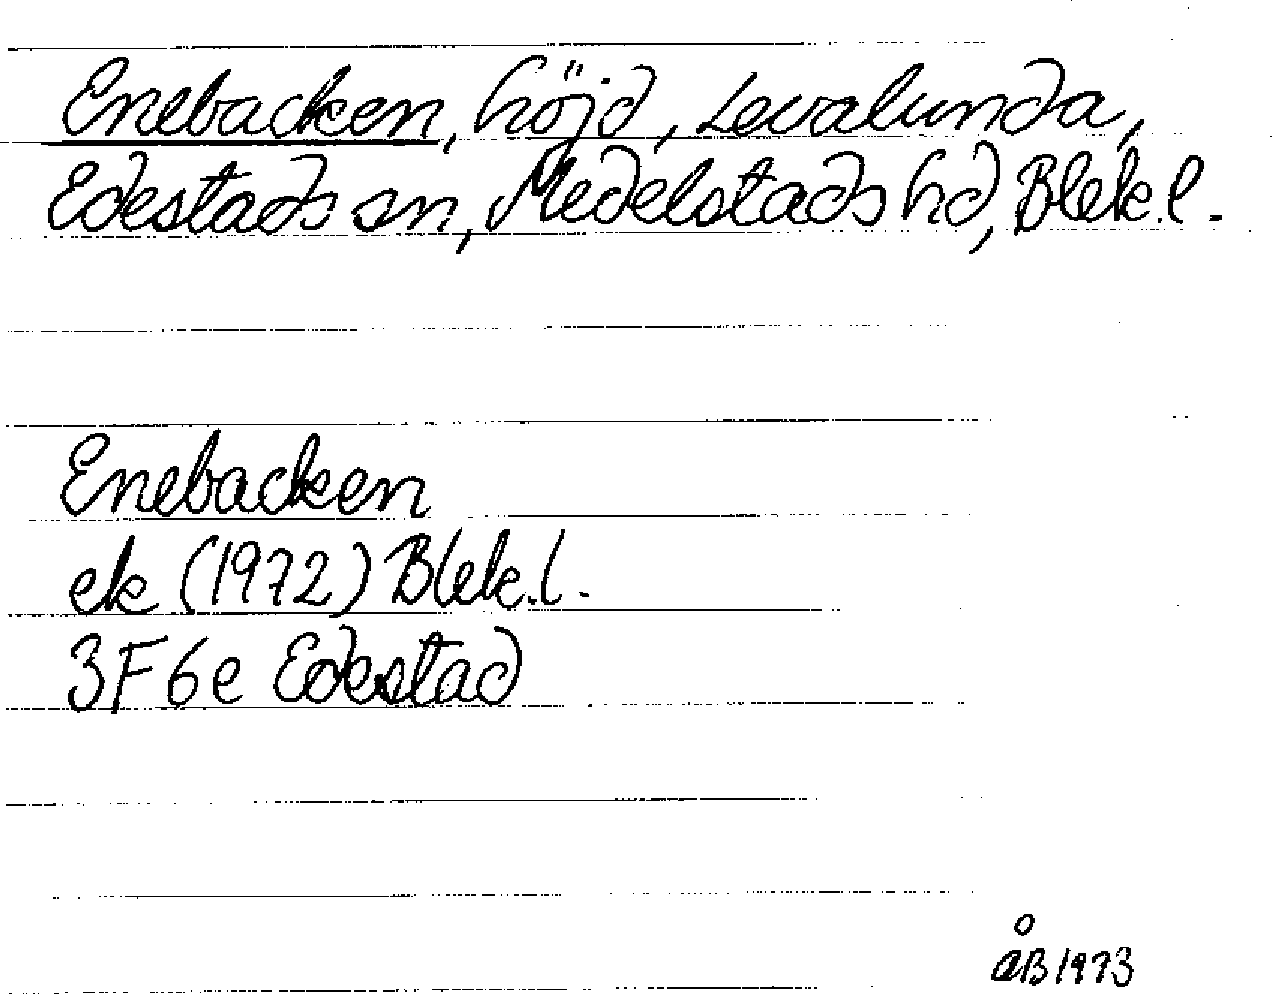 Enebacken, höjd, Levalunda,
Edestads sn, Medelstads hd, Blek.l.
Enebacken
ek (1972) Blek.l.
3F6e Edestad
ÅB 1973